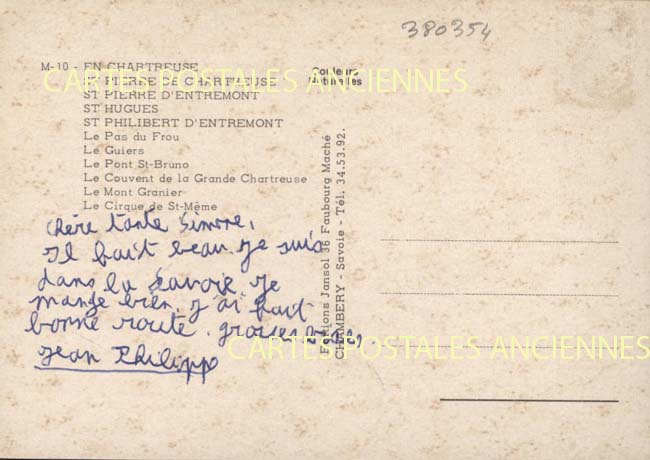 380354
M-10 - EN CHARTREUSE
ST PIERRE DE CHARTREUSE
ST PIERRE D'ENTREMONT
ST HUGUES
ST PHILIBERT D'ENTREMONT
Le Pas du Frou
Le Guiers
Le Pont St-Bruno
Le Couvent de la Grande Chartreuse
Le Mont Granier
Le Cirque de St-Même
Couleurs
Naturelles
CARTES POSTALES ANCIENNES
Chère tante Simone,
Il fait beau. je suis
dans la Savoie. Je
mange bien. j'ai fait
bonne route. grosses
Jean Philipp
Editions Jansol 36 Faubourg Maché
CHAMBERY - Savoie - Tél. 34.53.92.
CARTES POSTALES ANCIENNES